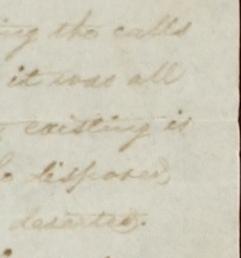 ing the calls
it was all
existing is
disposed
deserted.